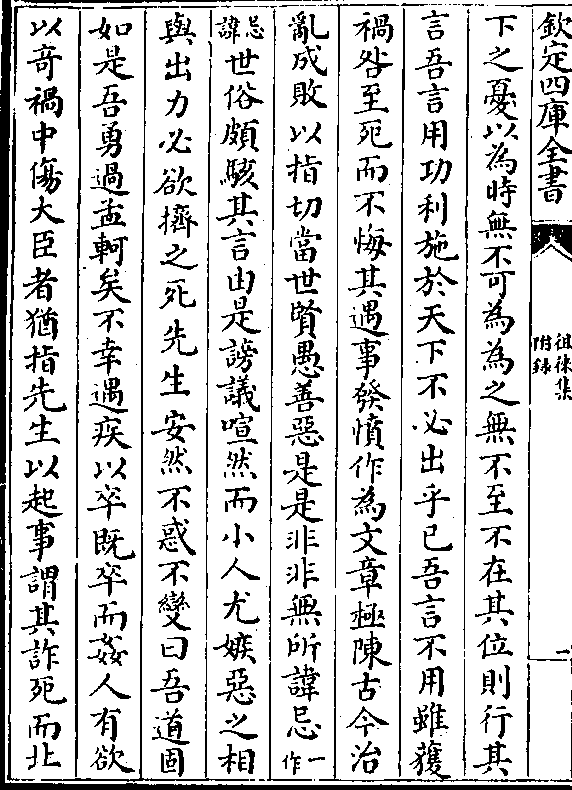 欽定四庫全書
徂徠集
附録
一
下之憂以為時無不可為為之無不至不在其位則行其
言吾言用功利施於天下不必出乎已吾言不用雖獲
禍咎至死而不悔其遇事發憤作為文章極陳古今治
亂成敗以指切當世賢愚善惡是是非非無所諱忌一作
忌諱世俗頗駭其言由是謗議喧然而小人尤嫉惡之相
與出力必欲擠之死先生安然不惑不變曰吾道固
如是吾勇過孟軻矣不幸遇疾以卒既卒而姦人有欲
以奇禍中傷大臣者猶指先生以起事謂其詐死而北